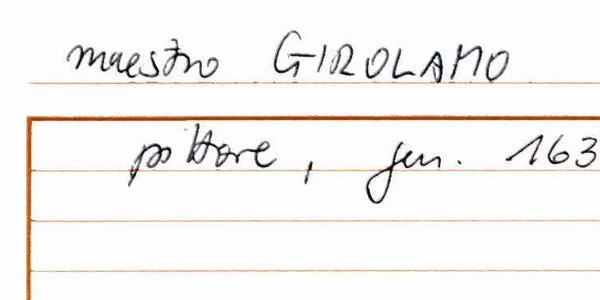 maestro GIROLAMO
pittore, fen. 163